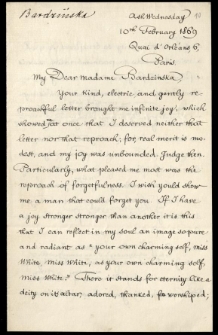 Bardzinska
Ash Wednesday
10th February 1869
Quai d'Orléans, 6,
Paris.
My Dear Madame Bardzinska,
Your kind, electric and gently re-
proachful letter brought me infinite joy, which
showed at once that I deserved neither that
letter nor that reproach; for, real merit is mo-
dest, and my joy was unbounded. Judge then.
Particularly, what pleased me most was the
reproach of forgetfulness. I wish you'd show
me a man that could forget you. If I have
a joy stronger than another it is this
that I can reflect in my soul an image so pure
and radiant as "your own charming self, miss
White, miss White, as your own charming self,
miss White." There it stands for eternity like a
deity on its altar, adored, thanked, worshiped,